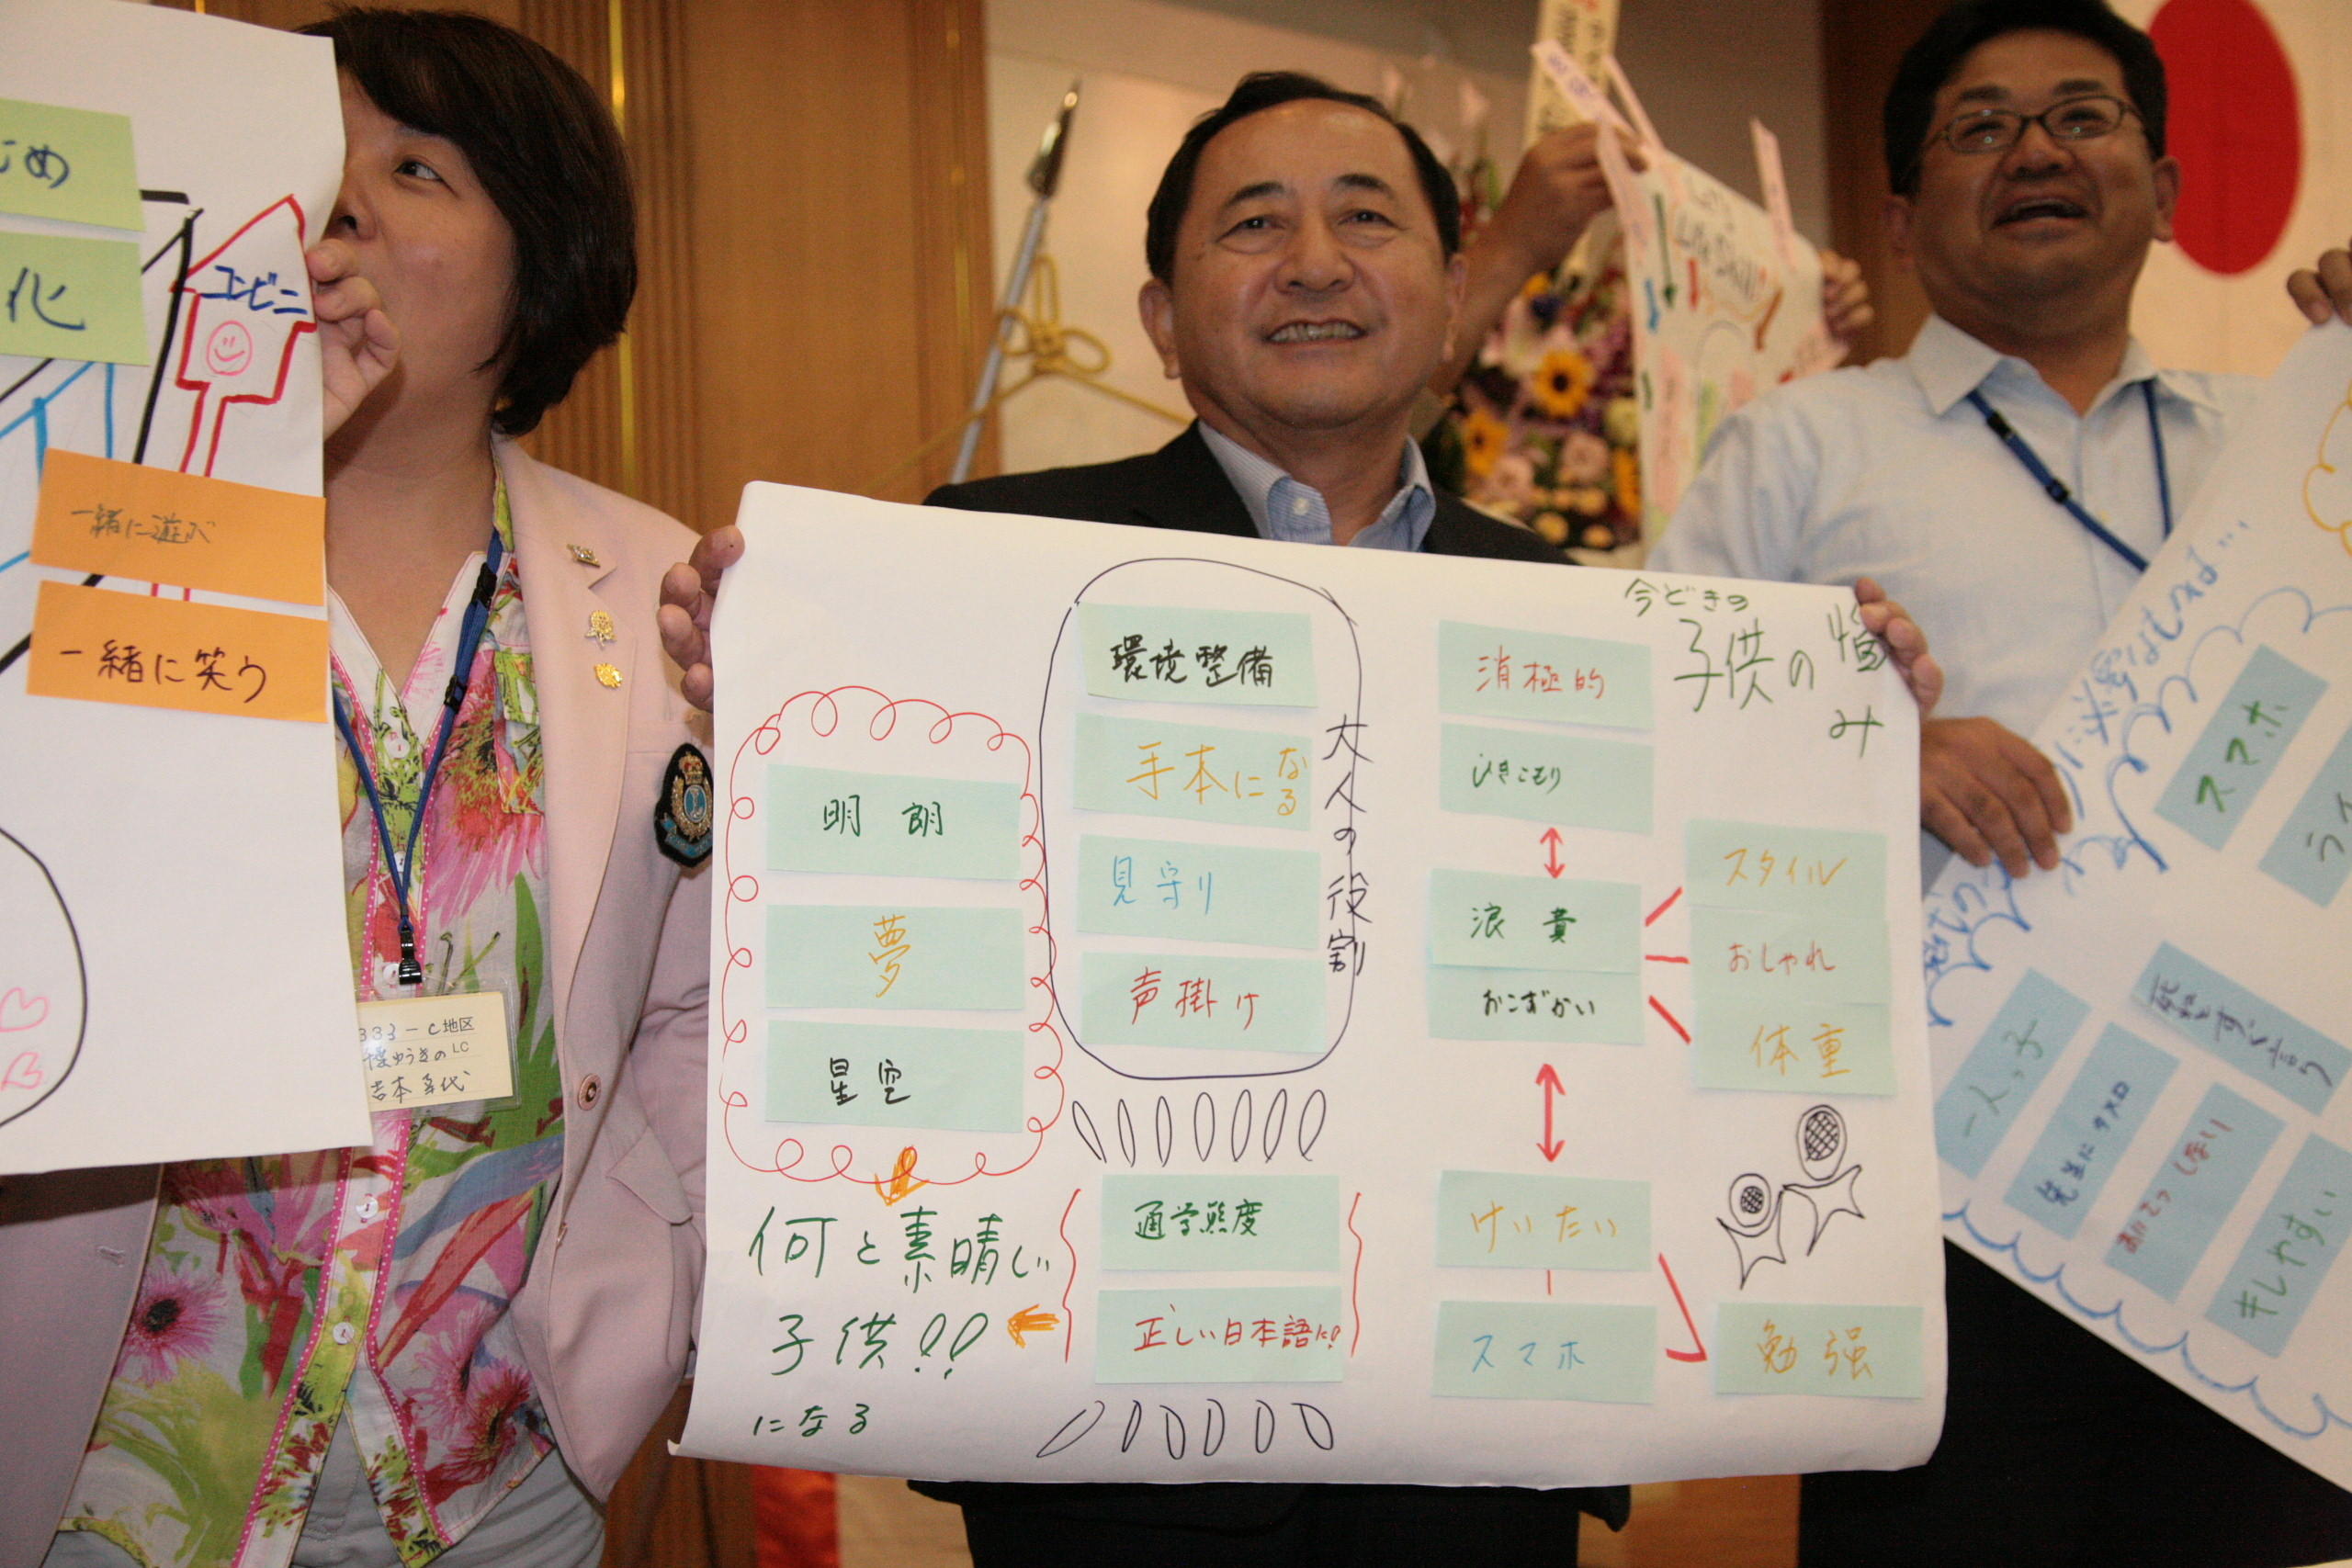 じめ
化
コンビニ
一緒に遊ぶ
一緒に笑う
333-C地区
LC
Life Skill
今どきの
子供の悩み
消極的
ひきこもり
浪費
おこずかい
スタイル
おしゃれ
体重
けいたい
スマホ
勉強
大人の役割
環境整備
手本になる
見守り
声掛け
通学態度
正しい日本語に!
明朗
夢
星空
何と素晴しい
子供!!
になる
スマホ
死ねとすぐ言う
一人っ子
先生にタメ口
キレやすい